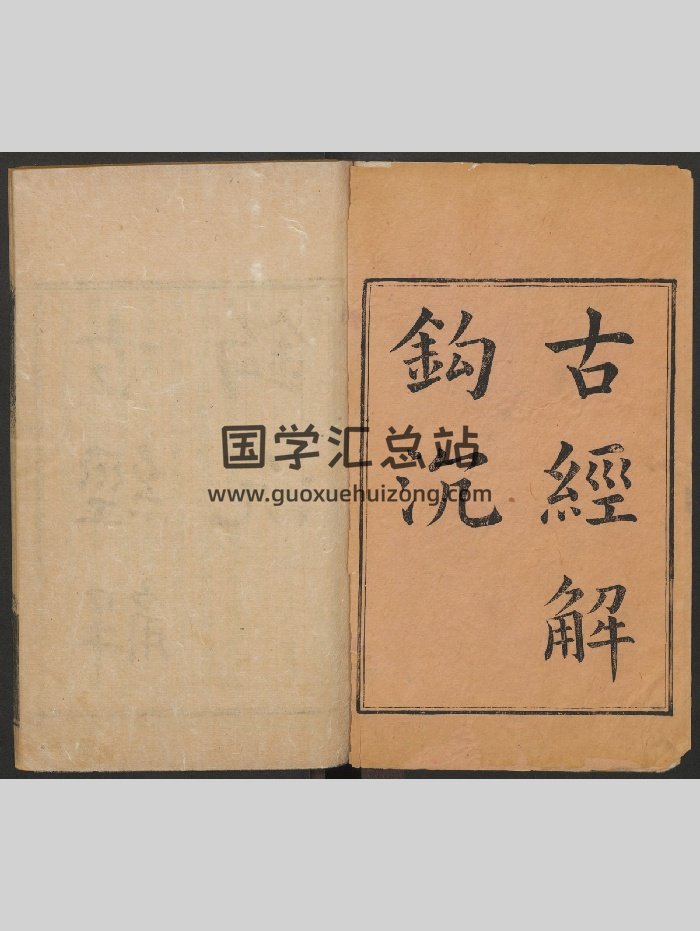 古經解
鈎沉
国学汇总站
www.guoxuehuizong.com